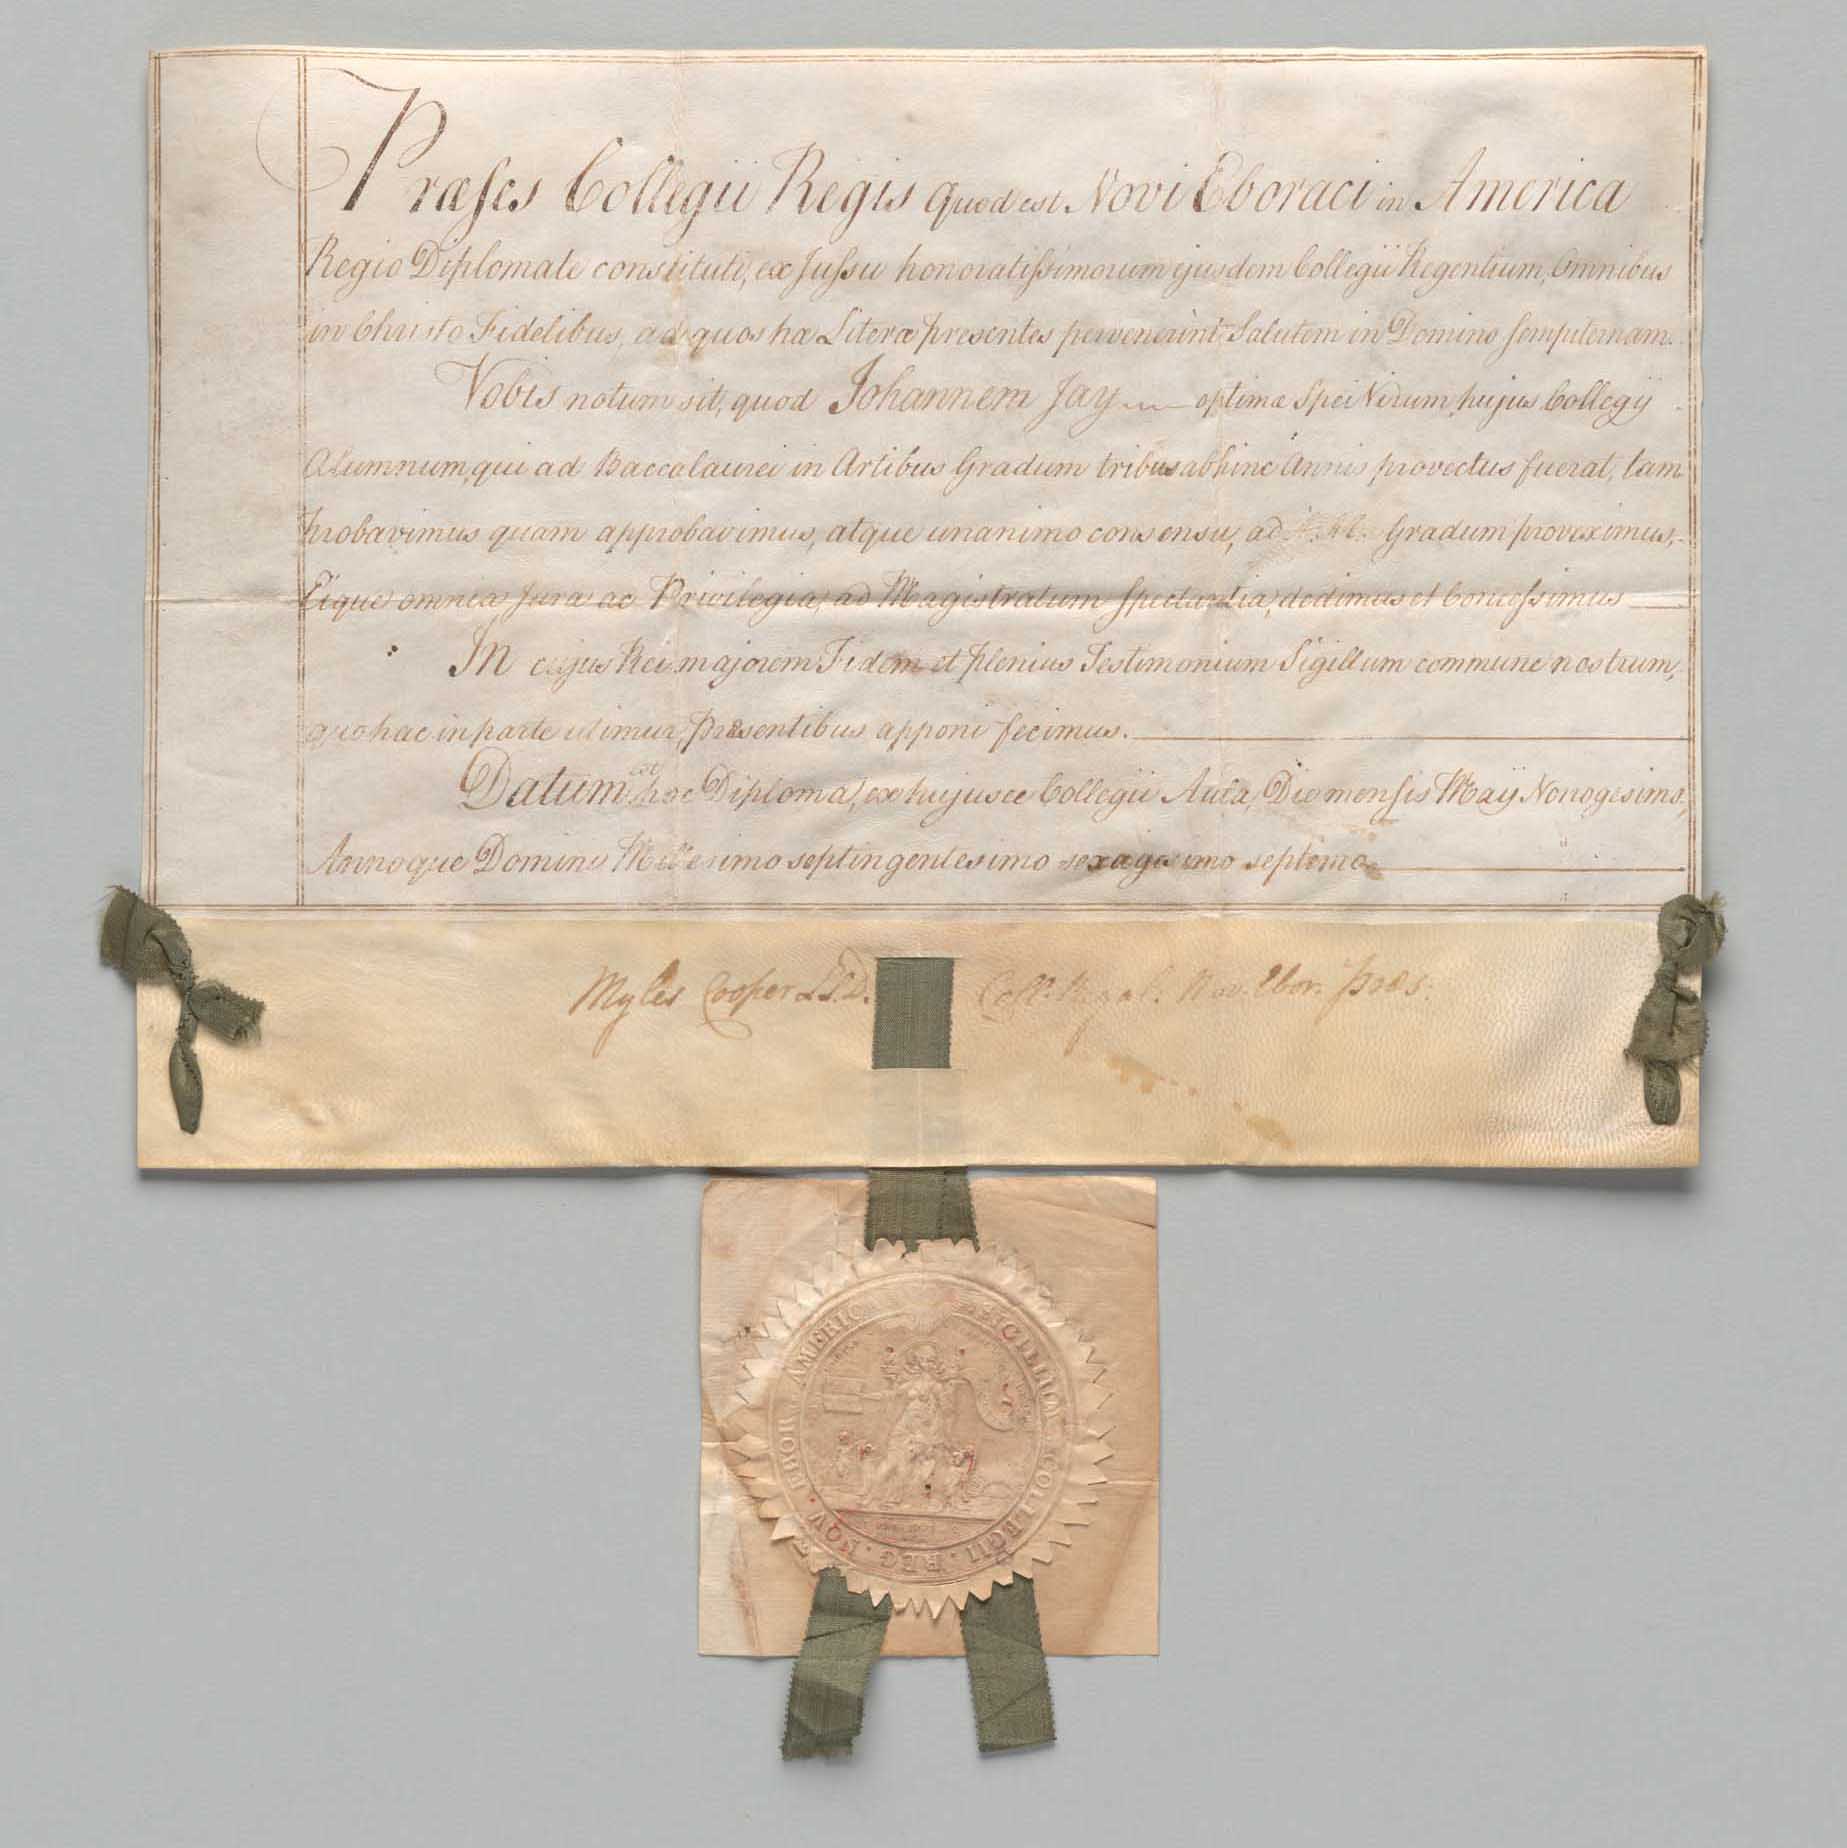 Præses Collegii Regis quod est Novi Eboraci in America
Regio Diplomate constituti, ex Jussu honoratissimorum ejusdem Collegii Regentium, Omnibus
in Christo Fidelibus, ad quos hæ Literæ presentes pervenerint, Salutem in Domino sempiternam.
Vobis notum sit, quod Johannem Jay optimæ Spei Virum, hujus Collegij
Alumnum, qui ad Baccalaurei in Artibus Gradum tribus abhinc Annis provectus fuerat, tam
probavimus quam approbavimus, atque unanimo consensu, ad Gradum proveximus,
Eique omnia Jura ac Privilegia, ad Magistratum spectantia, dedimus et Concessimus
In cujus Rei majorem Fidem et plenius Testimonium Sigillum commune nostrum,
quo hac in parte utimur, præsentibus apponi fecimus.
Datum est hoc Diploma, ex hujusce Collegii Aula, Die mensis Maij Nonogesimo,
Annoque Domini Millesimo septingentesimo sexagesimo septimo.
Myles Cooper LL.D. Coll. Regal. Nov. Ebor. Præs.
SIGILLUM COLLEGII . REG . NOV . EBOR . AMERIC